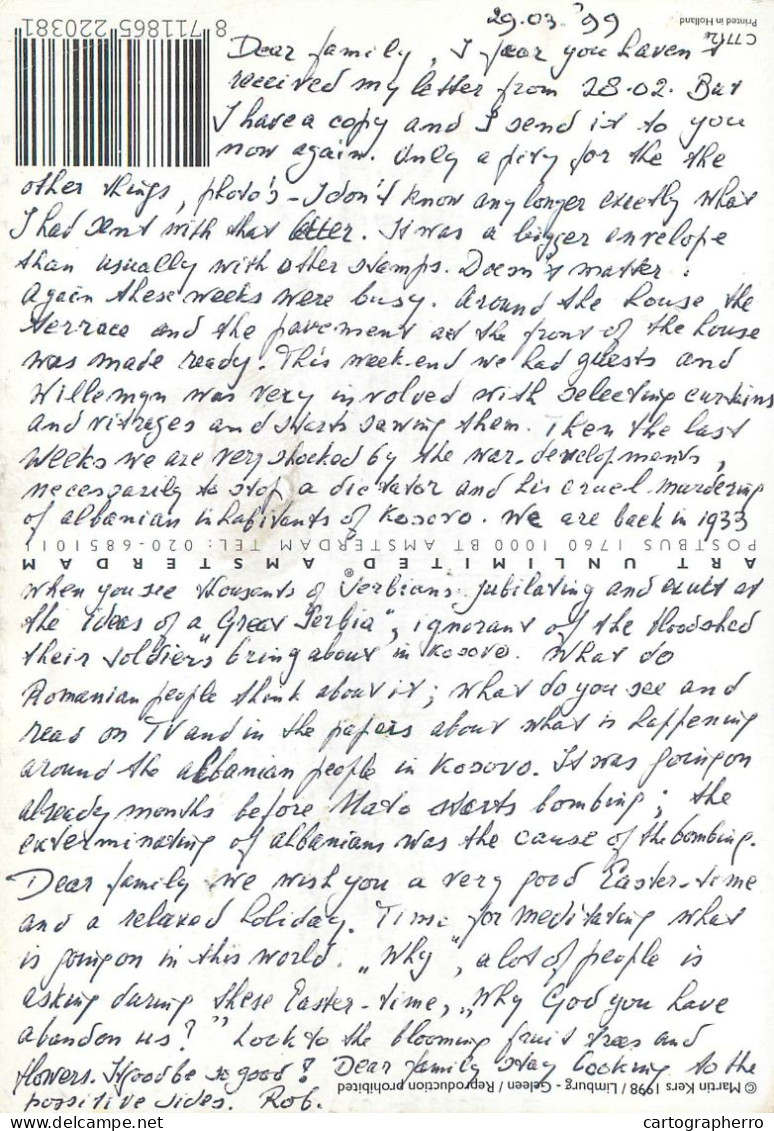 29.03.'99
Dear family, I fear you haven't
received my letter from 28.02. But
I have a copy and I send it to you
now again. Only a pity for the the
other things, photo's - I don't know any longer exectly what
I had sent with that letter. It was a bigger envelope
than usually with other stamps. Doesn't matter.
Again these weeks were busy. Around the house the
terrace and the pavement at the front of the house
was made ready. This week-end we had guests and
Willemyn was very involved with selecting curtains
and vitrages and starts sawing them. Then the last
weeks we are very shocked by the war-developments,
necessarily to stop a dictator and his cruel murdering
of albanian inhabitants of Kosovo. We are back in 1933
when you see thousants of Serbians jubilating and exult at
the ideas of a "Great Serbia", ignorant of the bloodshed
their soldiers bring about in Kosovo. What do
Romanian people think about it; what do you see and
read on TV and in the papers about what is happening
around the albanian people in Kosovo. It was going on
already months before Nato starts bombing; the
exterminating of albanians was the cause of the bombing.
Dear family we wish you a very good Easter-time
and a relaxed holiday. Time for meditating what
is going on in this world. „Why", a lot of people is
asking during these Easter-time, „Why God you have
abandon us?" Look to the blooming fruit trees and
flowers. Is good be so good? Dear family stay looking to the
possitive sides. Rob.
8 711865 220381
C7712
Printed in Holland
POSTBUS 1760 1000 BT AMSTERDAM TEL: 020-6851011
ART UNLIMITED ® AMSTERDAM
© Martin Kers 1998 / Limburg - Geleen / Reproduction prohibited
delcampe.net
cartographerro